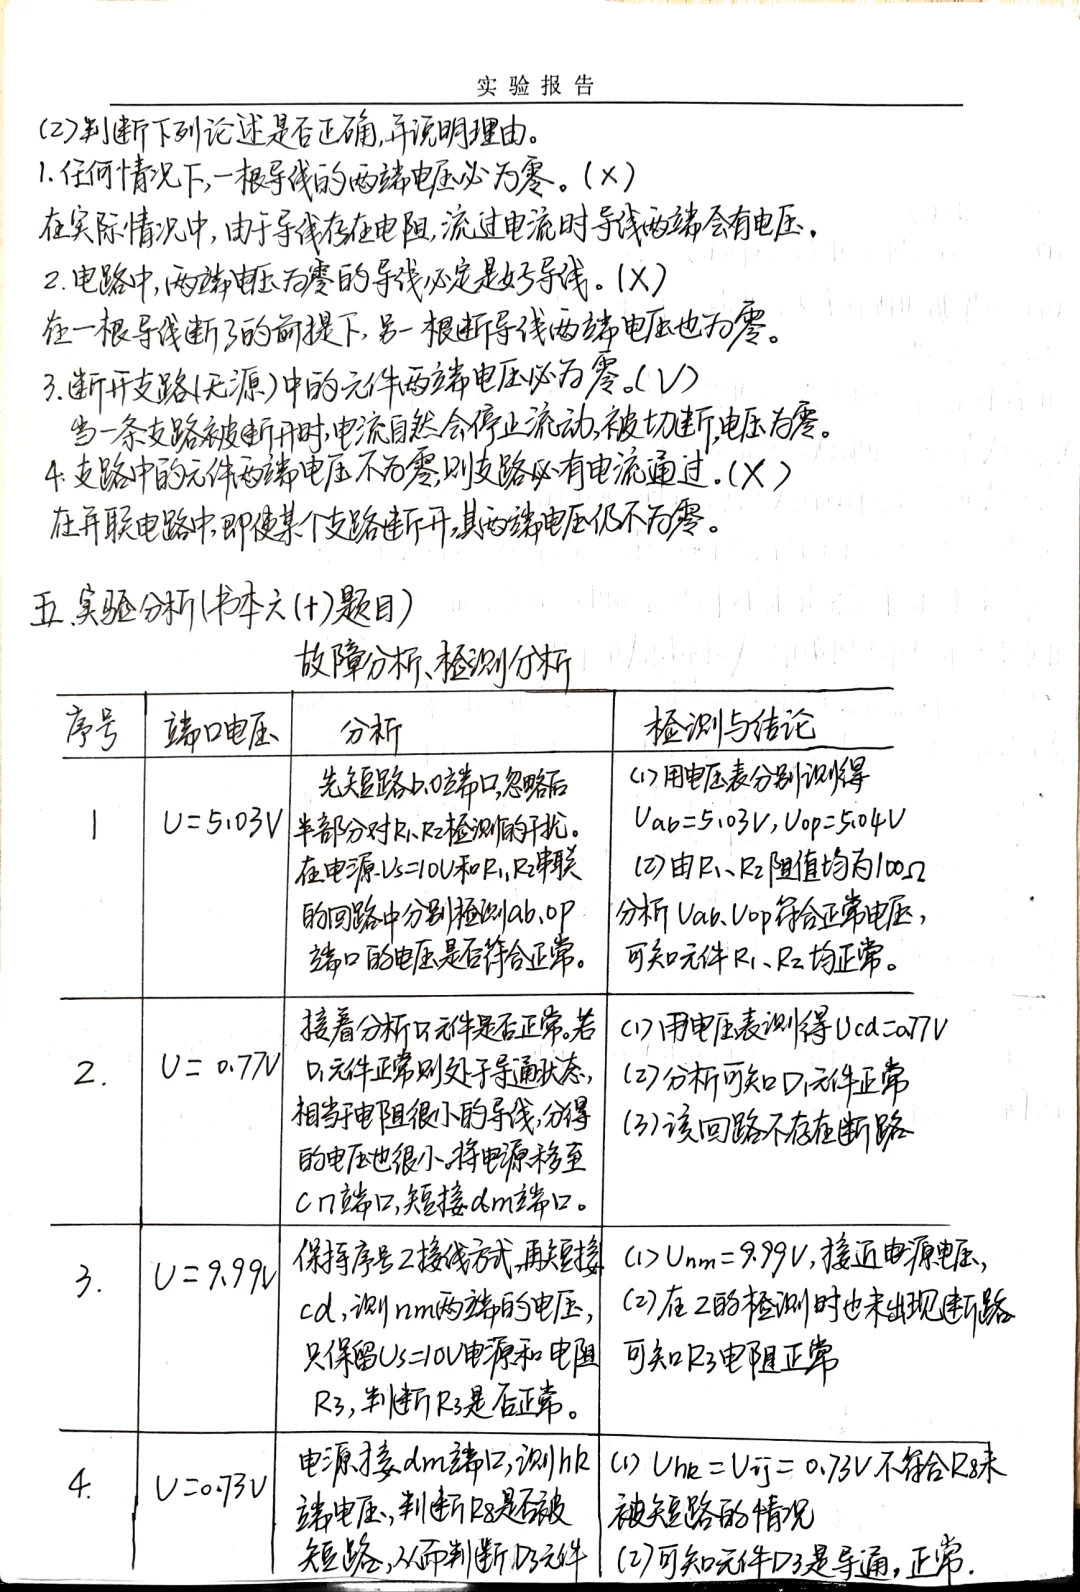 实验报告
(2)判断下列论述是否正确,并说明理由。
1.任何情况下,一根导线的两端电压必为零。(X)
在实际情况中,由于导线存在电阻,流过电流时导线两端会有电压。
2.电路中,两端电压为零的导线必定是好导线。(X)
在一根导线断了的前提下,另一根断导线两端电压也为零。
3.断开支路(无源)中的元件两端电压必为零。(√)
当一条支路被断开时,电流自然会停止流动,被切断,电压为零。
4.支路中的元件两端电压不为零,则支路必有电流通过。(X)
在并联电路中,即使某个支路断开,其两端电压仍不为零。
五.实验分析(书本六(十)题目)
故障分析、检测分析
序号 端口电压 分析 检测与结论
1 U=5.03V
先短路b.0端口,忽略后
半部分对R1、R2检测的干扰。
在电源Us=10V和R1,R2串联
的回路中分别检测ab、op
端口的电压是否符合正常。
(1)用电压表分别测得
Uab=5.03V,Uop=5.04V
(2)由R1、R2阻值均为100Ω
分析Uab、Uop符合正常电压,
可知元件R1、R2均正常。
2. U=0.77V
接着分析D1元件是否正常。若
D1元件正常则处于导通状态,
相当于电阻很小的导线,分得
的电压也很小。将电源移至
cn端口,短接dm端口。
(1)用电压表测得Ucd=0.77V
(2)分析可知D1元件正常
(3)该回路不存在断路
3. U=9.99V
保持序号2接线方式,再短接
cd,测nm两端的电压,
只保留Us=10V电源和电阻
R3,判断R3是否正常。
(1)Unm=9.99V,接近电源电压,
(2)在2的检测时也未出现断路
可知R3电阻正常
4. U=0.73V
电源接dm端口,测hk
端电压,判断R8是否被
短路,从而判断D3元件
(1)Uhk=Uij=0.73V不符合R8未
被短路的情况
(2)可知元件D3是导通,正常.